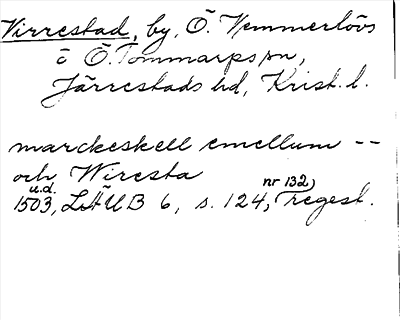 Virrestad, by, Ö. Hemmerlövs
o Ö. Tommarps sn,
Järrestads hd, Krist. l.
marckeskell emellum --
och Wiresta
u.d. nr 132,
1503, LÄUB 6, s. 124, regest.